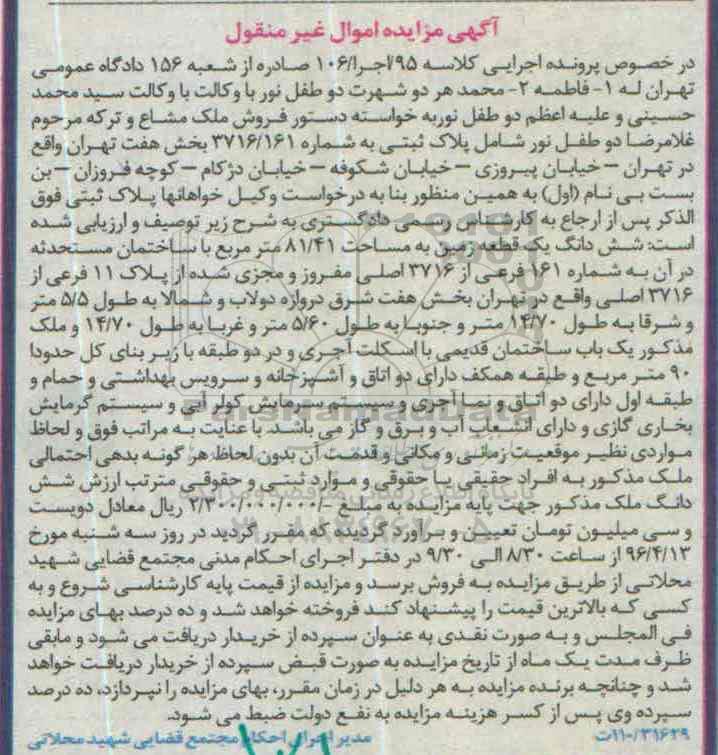 آگهی مزایده اموال غیر منقول
در خصوص پرونده اجرایی کلاسه ۹۵/اجرا/۱۰۶ صادره از شعبه ۱۵۶ دادگاه عمومی
تهران له ۱- فاطمه ۲- محمد هر دو شهرت دو طفل نور با وکالت با وکالت سید محمد
حسینی و علیه اعظم دو طفل نوربه خواسته دستور فروش ملک مشاع و ترکه مرحوم
غلامرضا دو طفل نور شامل پلاک ثبتی به شماره ۳۷۱۶/۱۶۱ بخش هفت تهران واقع
در تهران – خیابان پیروزی – خیابان شکوفه – خیابان دژکام – کوچه فروزان – بن
بست بی نام (اول) به همین منظور بنا به درخواست وکیل خواهانها پلاک ثبتی فوق
الذکر پس از ارجاع به کارشناس رسمی دادگستری به شرح زیر توصیف و ارزیابی شده
است: شش دانگ یک قطعه زمین به مساحت ۸۱/۴۱ متر مربع با ساختمان مستحدثه
در آن به شماره ۱۶۱ فرعی از ۳۷۱۶ اصلی مفروز و مجزی شده از پلاک ۱۱ فرعی از
۳۷۱۶ اصلی واقع در تهران بخش هفت شرق دروازه دولاب و شمالا به طول ۵/۵ متر
و شرقا به طول ۱۴/۷۰ متر و جنوبا به طول ۵/۶۰ متر و غربا به طول ۱۴/۷۰ و ملک
مذکور یک باب ساختمان قدیمی با اسکلت آجری و در دو طبقه با زیر بنای کل حدودا
۹۰ متر مربع و طبقه همکف دارای دو اتاق و آشپزخانه و سرویس بهداشتی و حمام و
طبقه اول دارای دو اتاق و نما آجری و سیستم سرمایش کولر آبی و سیستم گرمایش
بخاری گازی و دارای انشعاب آب و برق و گاز می باشد. با عنایت به مراتب فوق و لحاظ
مواردی نظیر موقعیت زمانی و مکانی و قدمت آن بدون لحاظ هر گونه بدهی احتمالی
ملک مذکور به افراد حقیقی یا حقوقی و موارد ثبتی و حقوقی مترتب ارزش شش
دانگ ملک مذکور جهت پایه مزایده به مبلغ -/۲/۳۰۰/۰۰۰/۰۰۰ ریال معادل دویست
و سی میلیون تومان تعیین و برآورد گردیده که مقرر گردید در روز سه شنبه مورخ
۹۶/۴/۱۳ از ساعت ۸/۳۰ الی ۹/۳۰ در دفتر اجرای احکام مدنی مجتمع قضایی شهید
محلاتی از طریق مزایده به فروش برسد و مزایده از قیمت پایه کارشناسی شروع و به
کسی که بالاترین قیمت را پیشنهاد کند فروخته خواهد شد و ده درصد بهای مزایده
فی المجلس و به صورت نقدی به عنوان سپرده از خریدار دریافت می شود و مابقی
ظرف مدت یک ماه از تاریخ مزایده به صورت قبض سپرده از خریدار دریافت خواهد
شد و چنانچه برنده مزایده به هر دلیل در زمان مقرر، بهای مزایده را نپردازد، ده درصد
سپرده وی پس از کسر هزینه مزایده به نفع دولت ضبط می شود.
مدیر اجرای احکام مجتمع قضایی شهید محلاتی
۱۱۰/۳۱۶۲۹ت